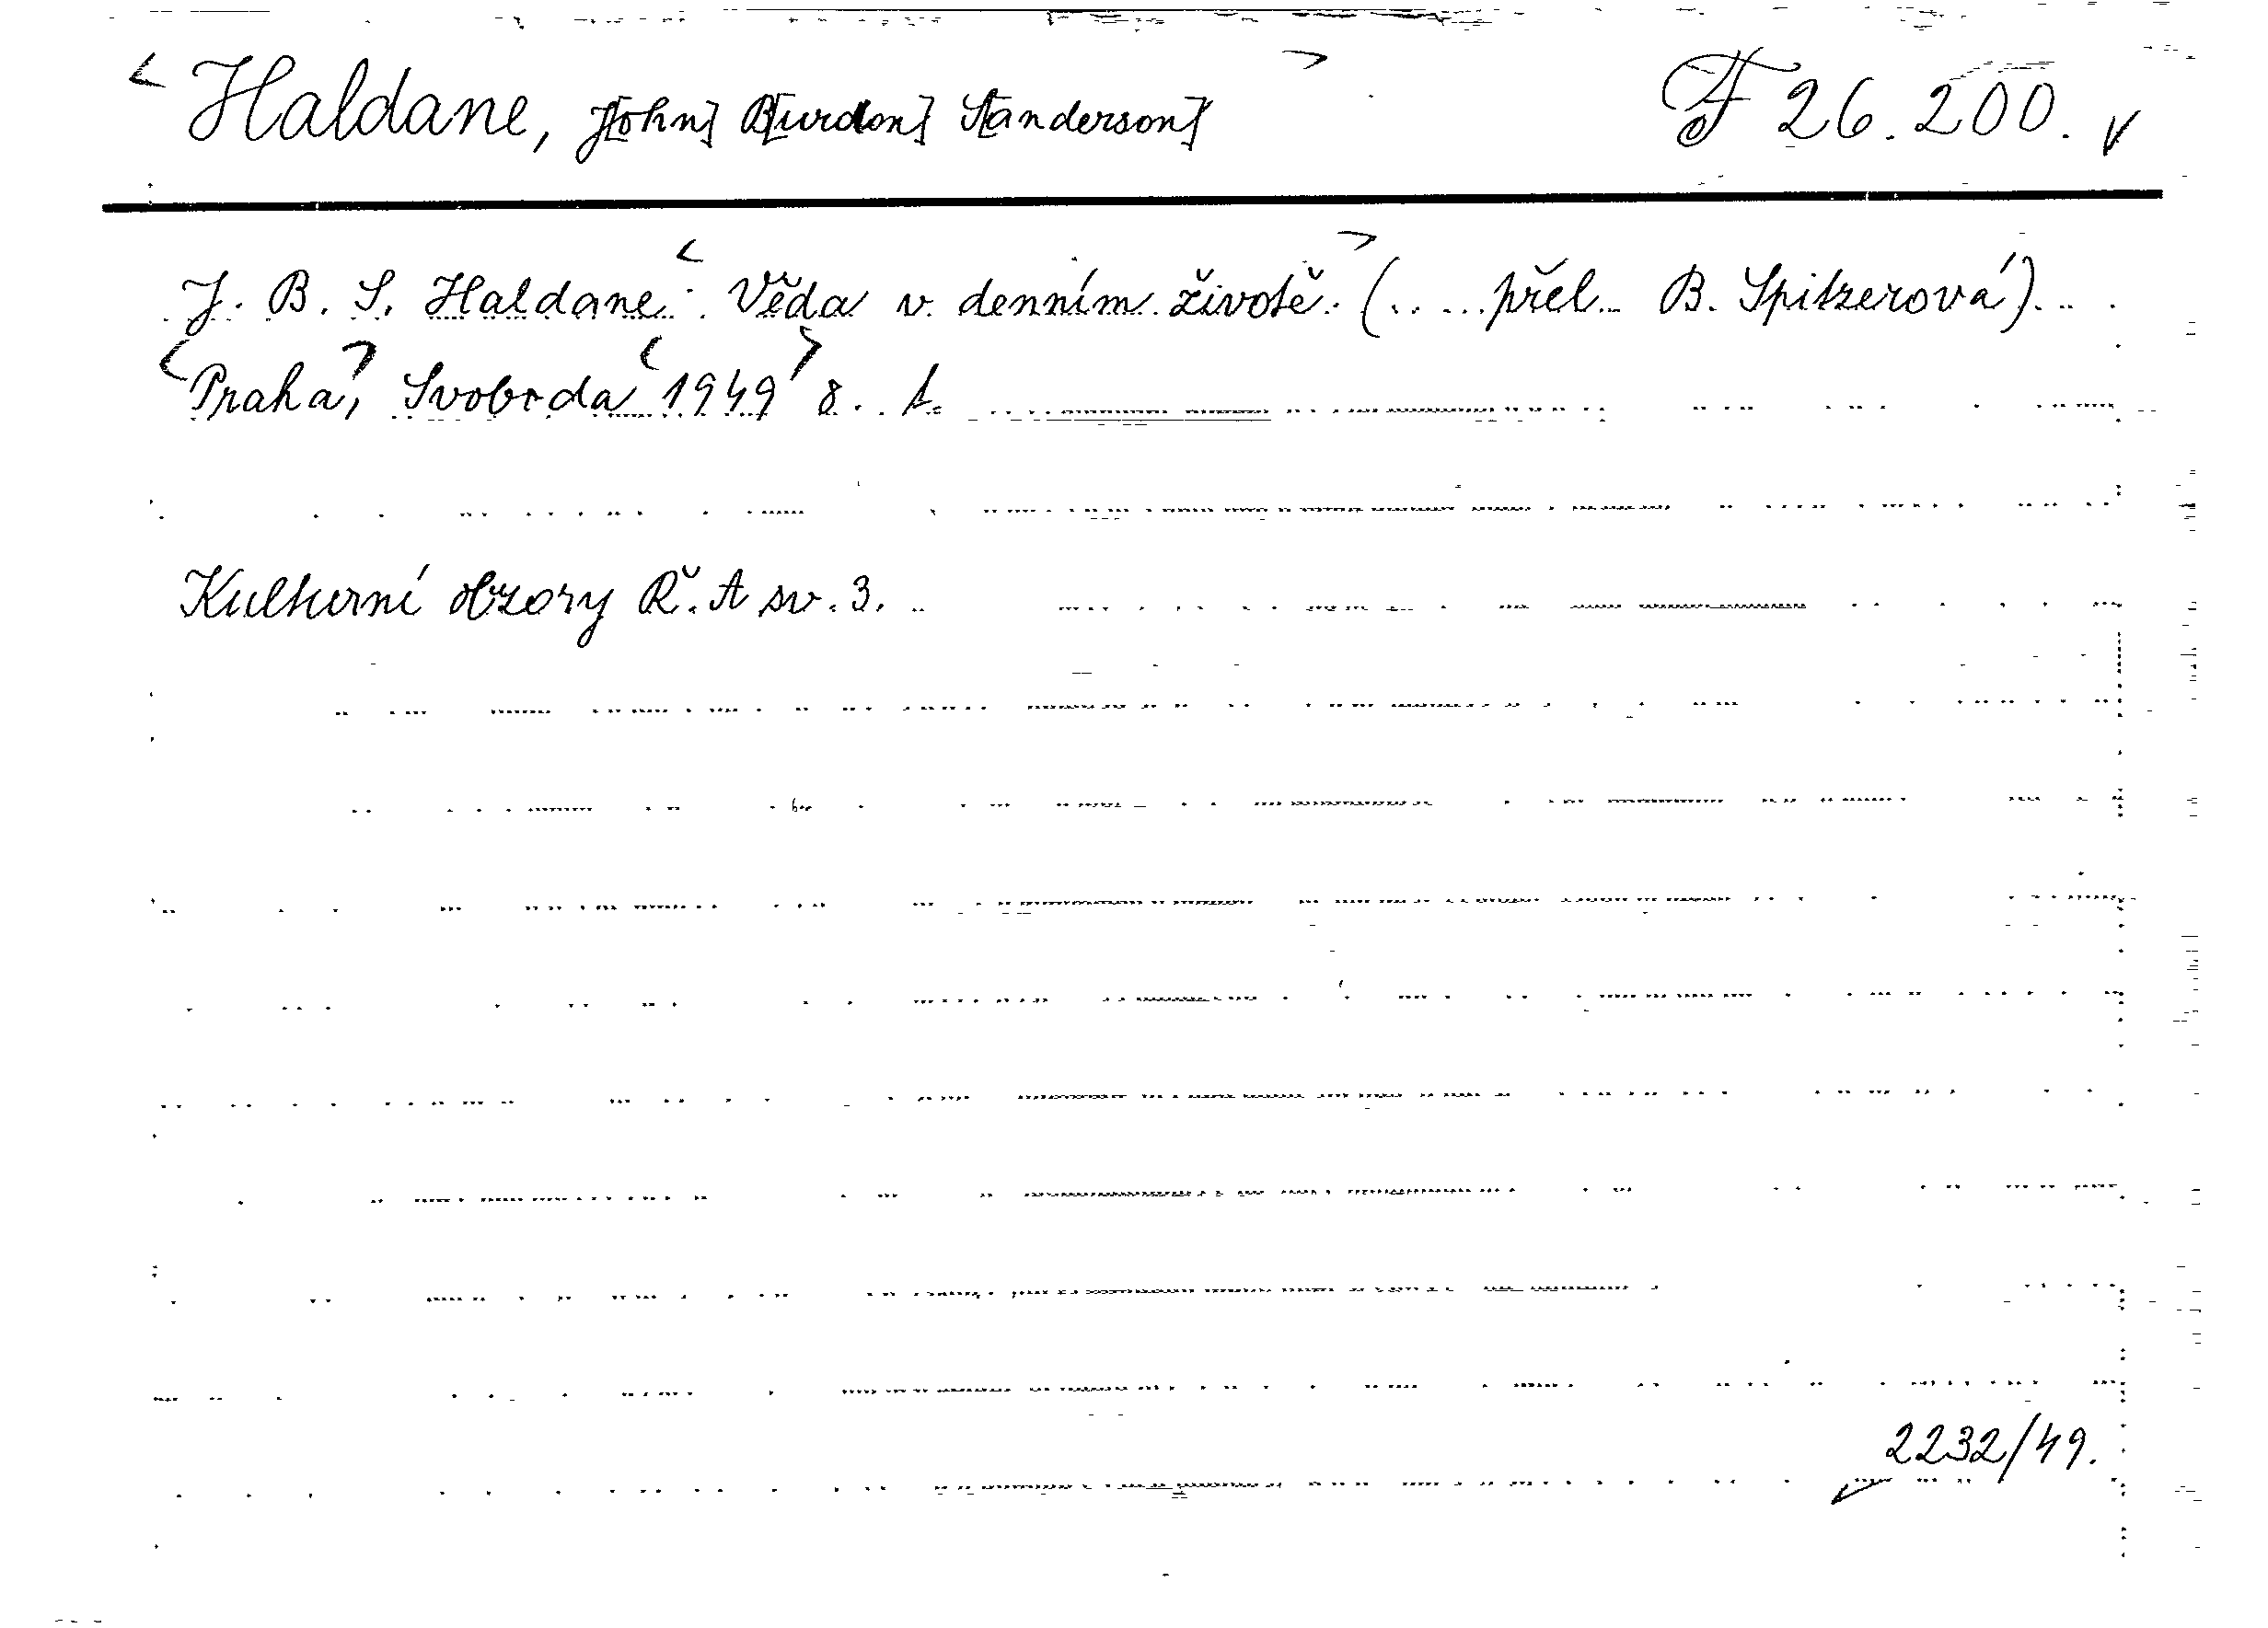 < Haldane, J[ohn] B[urdon] S[anderson] > F 26.200. v
J. B. S. Haldane: < Věda v denním životě. > (.....přel... B. Spitzerová)...
<Praha>, Svoboda <1949> 8. t.
Kulturní obzory Ř. A sv. 3.
2232/49.